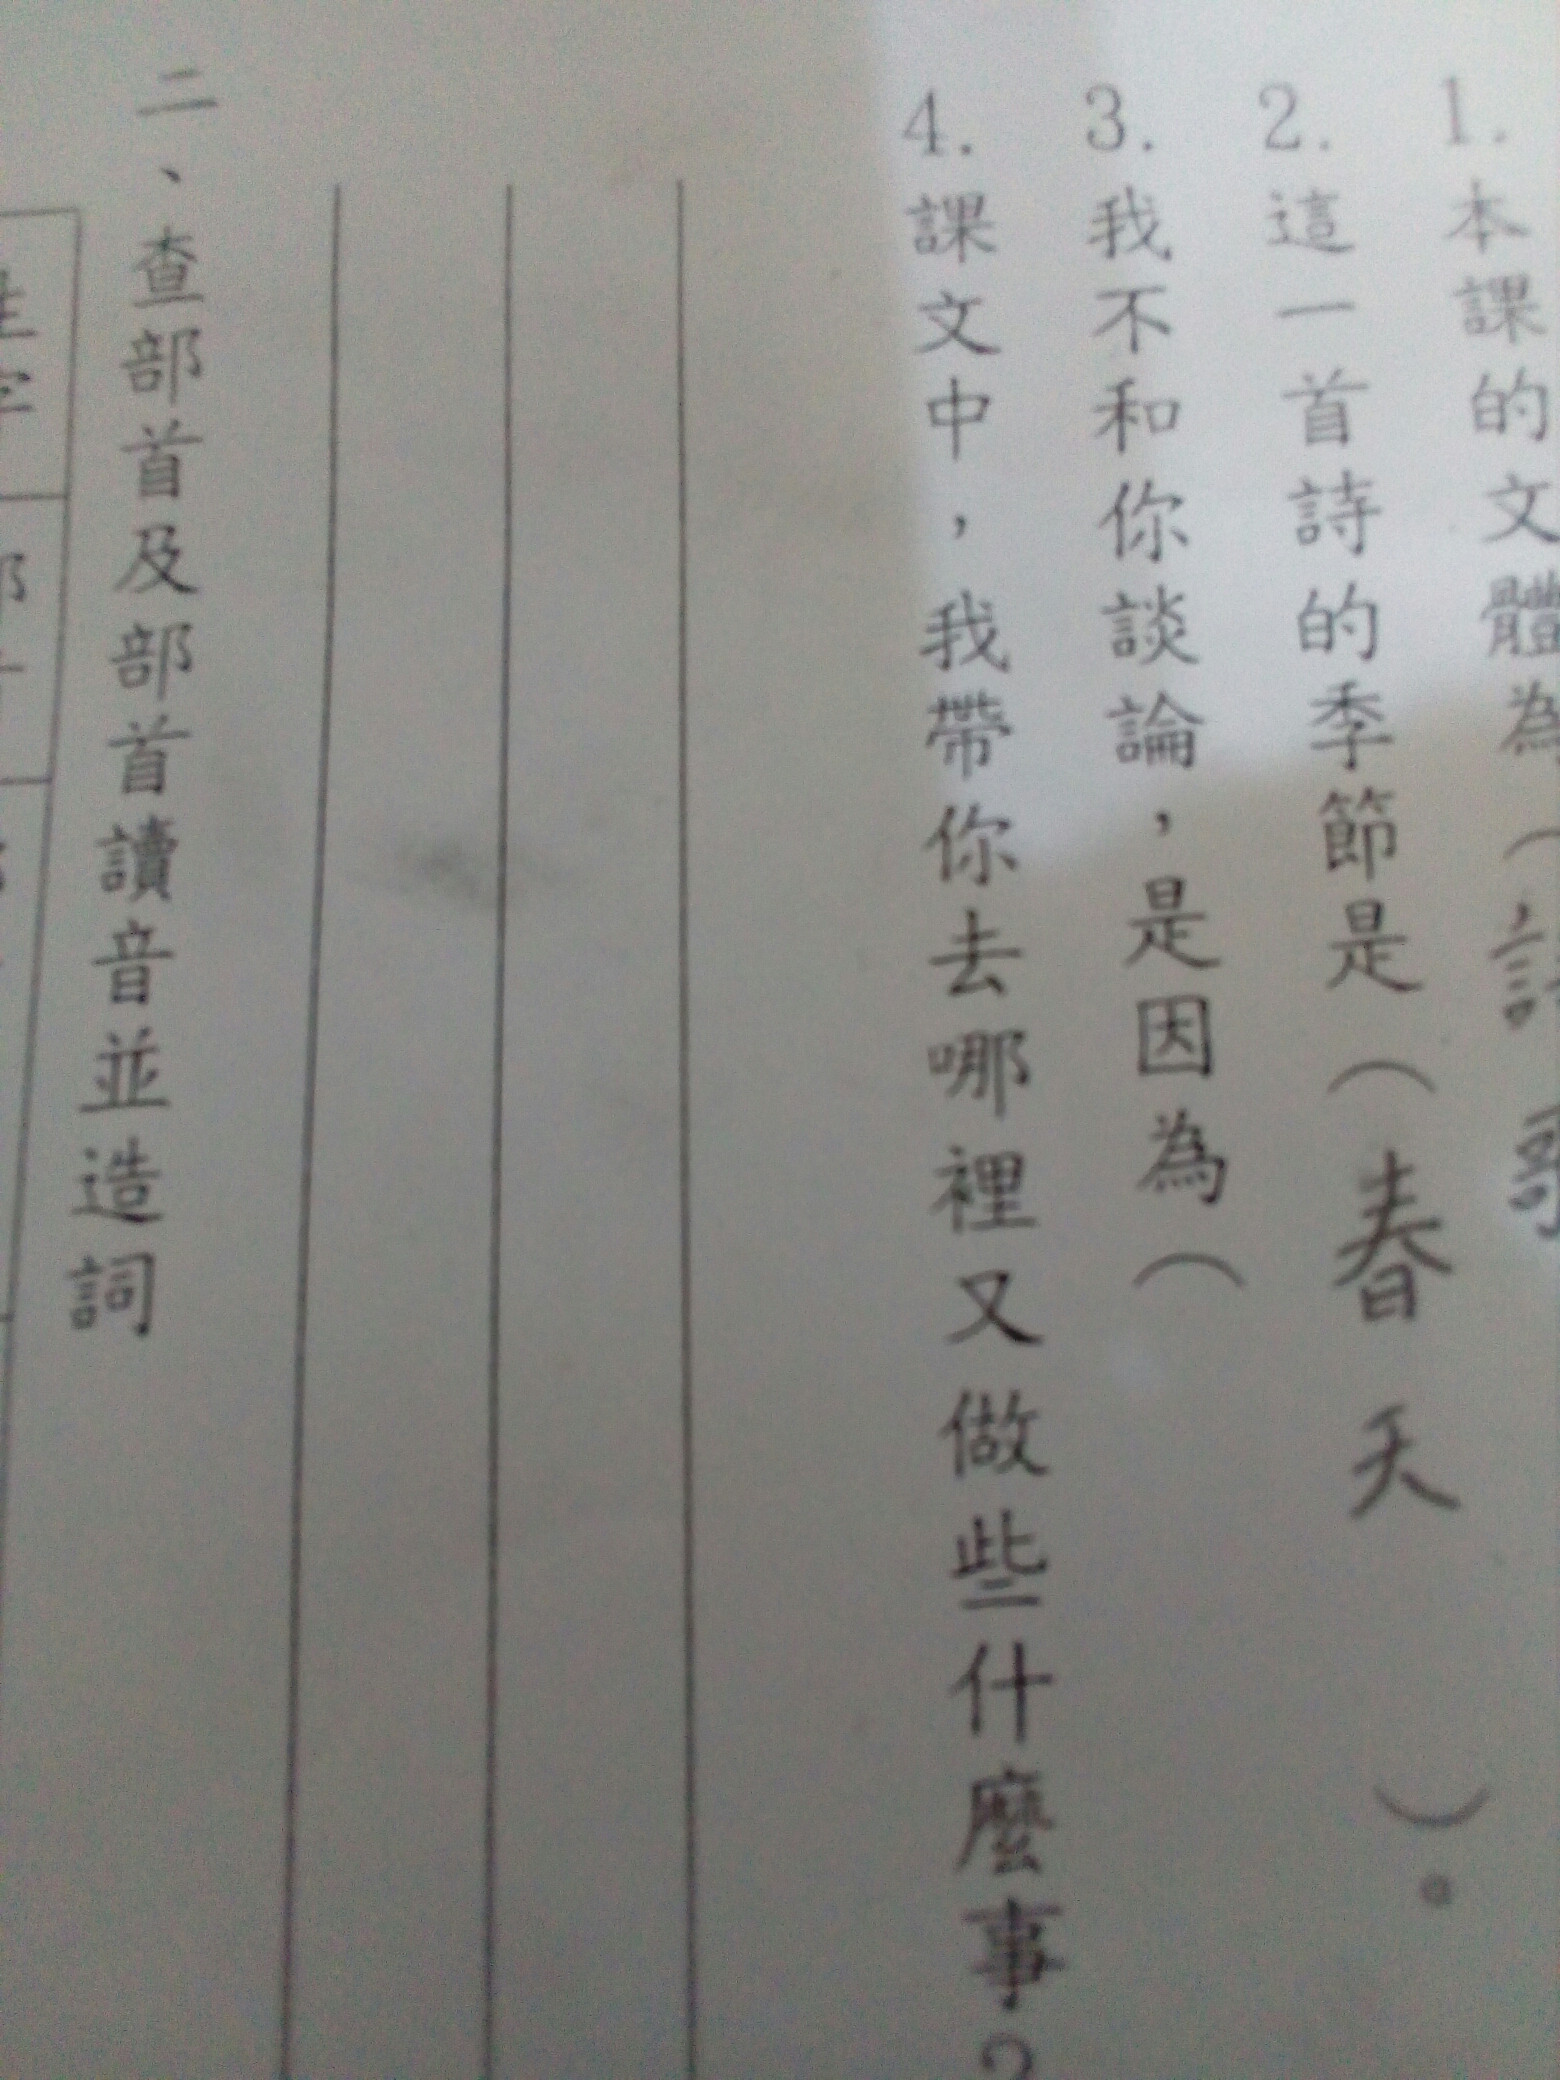 1. 本課的文體為（詩歌
2. 這一首詩的季節是（春天）。
3. 我不和你談論，是因為（
4. 課文中，我帶你去哪裡又做些什麼事？
二、查部首及部首讀音並造詞